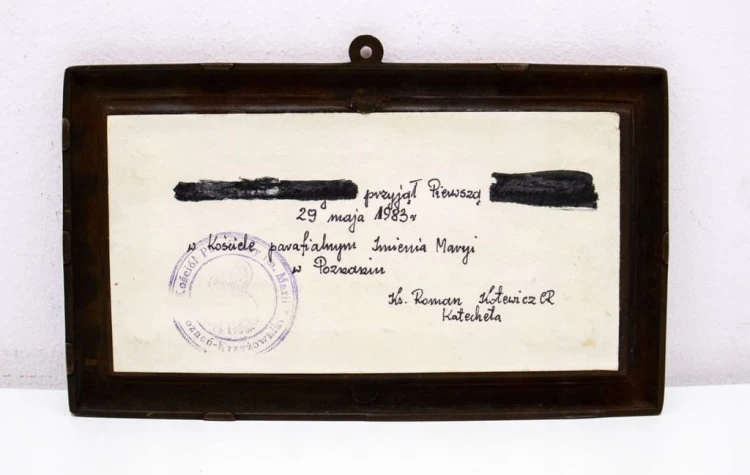 przyjął Pierwszą
29 maja 1983r
w Kościele parafialnym Imienia Maryi
w Poznaniu
Ks. Roman Kotewicz CR
Katecheta